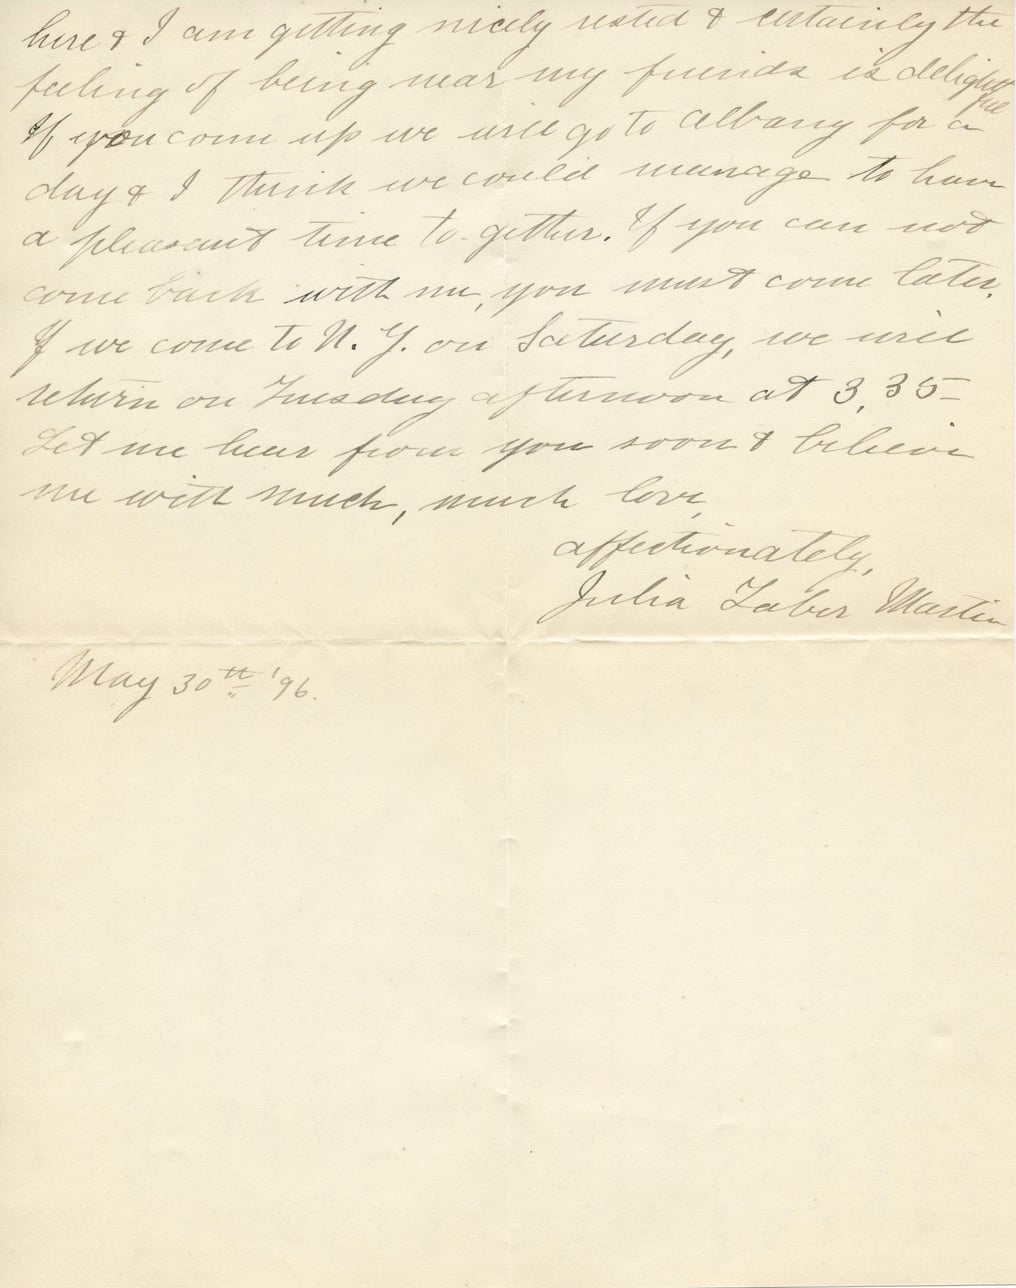 here & I am getting nicely rested & certainly the
feeling of being near my friends is delight
ful
If you come up we will go to Albany for a
day & I think we could manage to have
a pleasant time to-gether. If you can not
come back with me, you must come later.
If we come to N. Y. on Saturday, we will
return on Tuesday afternoon at 3,35-
Let me hear from you soon & believe
me with much, much love,
affectionately,
Julia Taber Martin
May 30th '96.